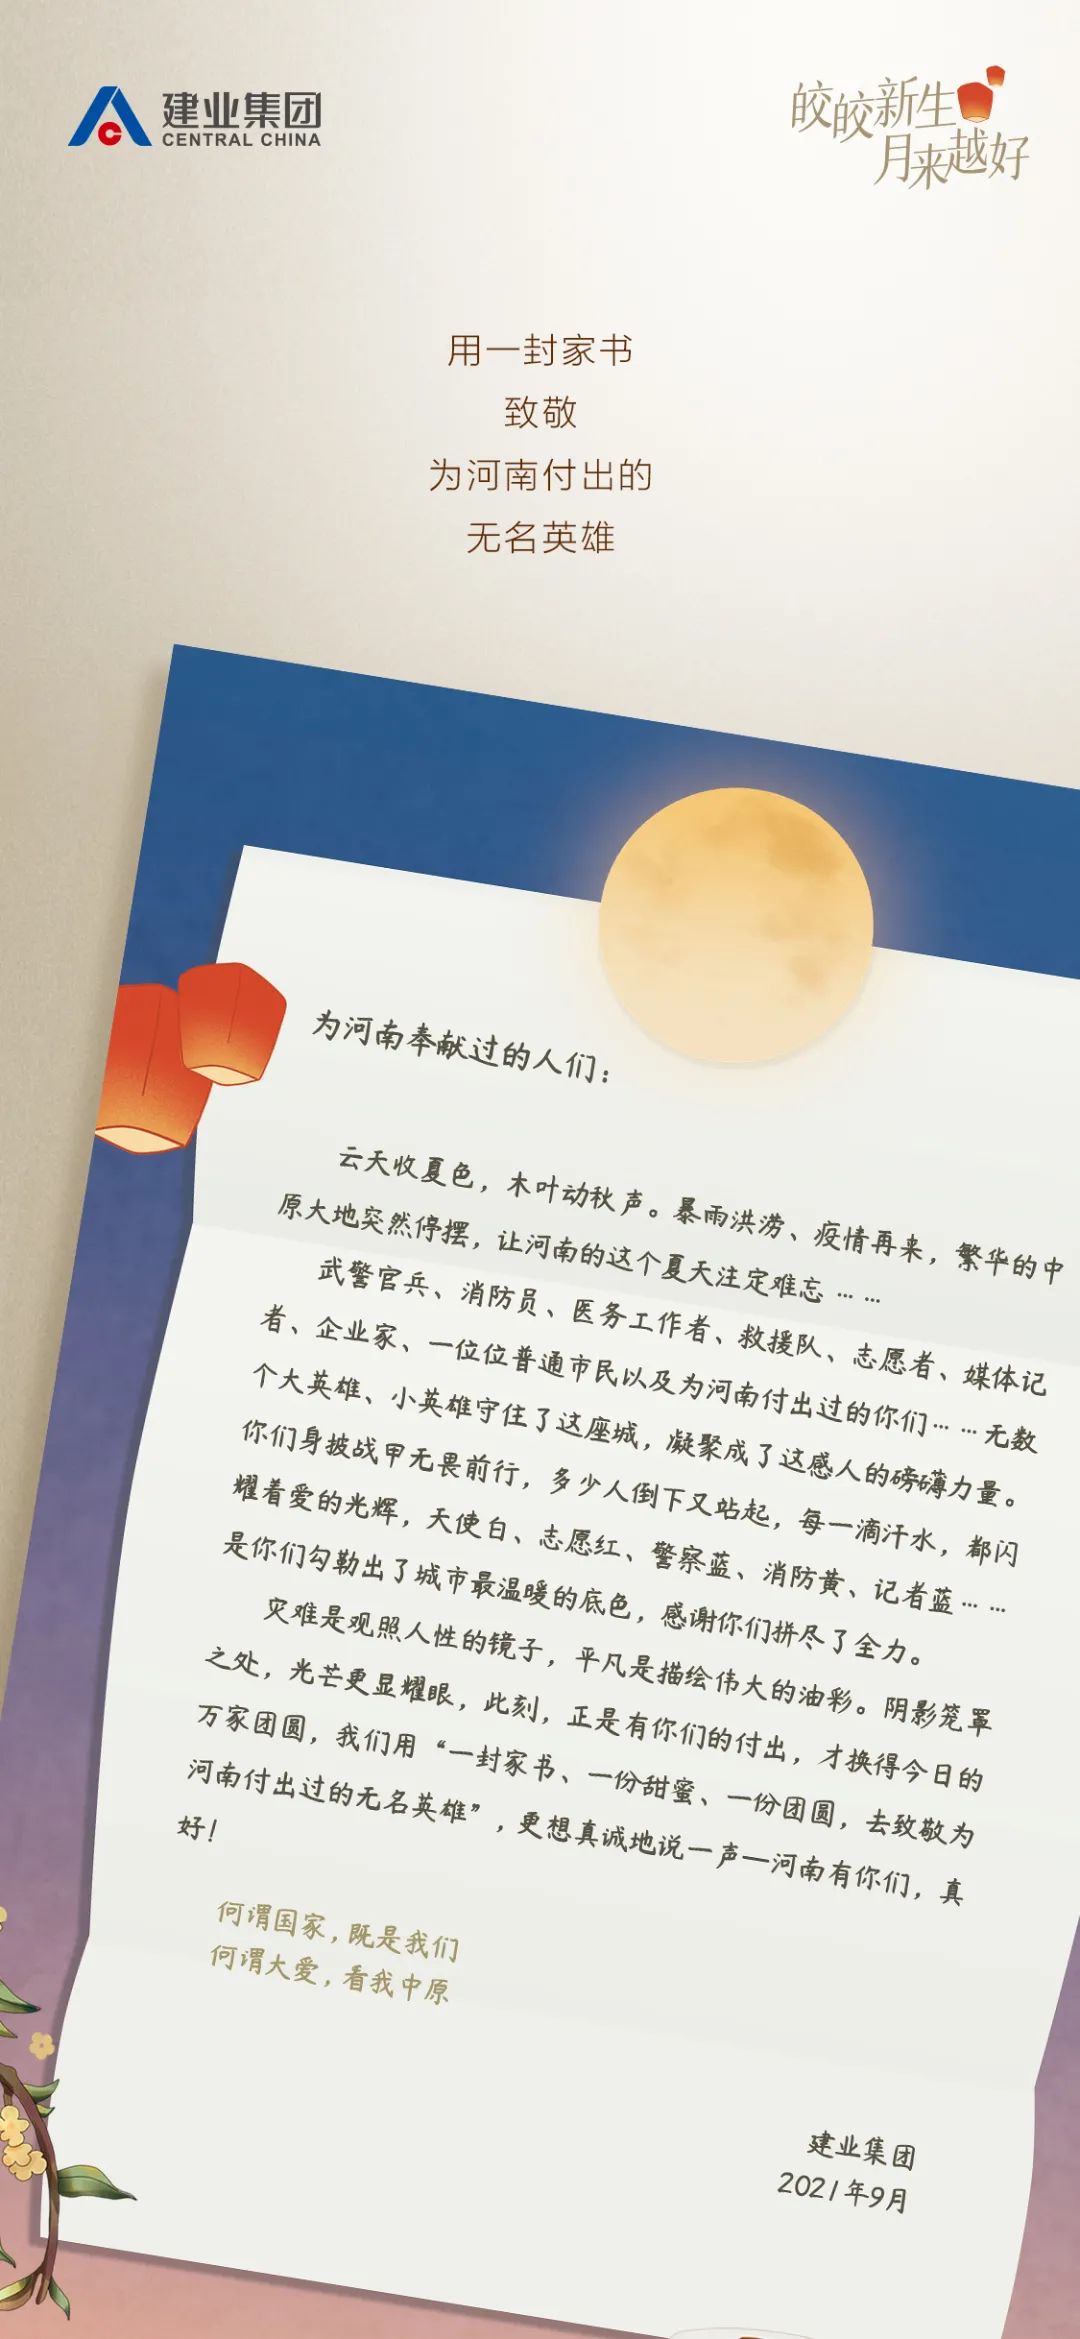 建业集团
CENTRAL CHINA
皎皎新生
月来越好
用一封家书
致敬
为河南付出的
无名英雄
为河南奉献过的人们：
云天收夏色，木叶动秋声。暴雨洪涝、疫情再来，繁华的中
原大地突然停摆，让河南的这个夏天注定难忘……
武警官兵、消防员、医务工作者、救援队、志愿者、媒体记
者、企业家、一位位普通市民以及为河南付出过的你们……无数
个大英雄、小英雄守住了这座城，凝聚成了这感人的磅礴力量。
你们身披战甲无畏前行，多少人倒下又站起，每一滴汗水，都闪
耀着爱的光辉，天使白、志愿红、警察蓝、消防黄、记者蓝……
是你们勾勒出了城市最温暖的底色，感谢你们拼尽了全力。
灾难是观照人性的镜子，平凡是描绘伟大的油彩。阴影笼罩
之处，光芒更显耀眼，此刻，正是有你们的付出，才换得今日的
万家团圆，我们用“一封家书、一份甜蜜、一份团圆，去致敬为
河南付出过的无名英雄”，更想真诚地说一声—河南有你们，真
好！
何谓国家，既是我们
何谓大爱，看我中原
建业集团
2021年9月